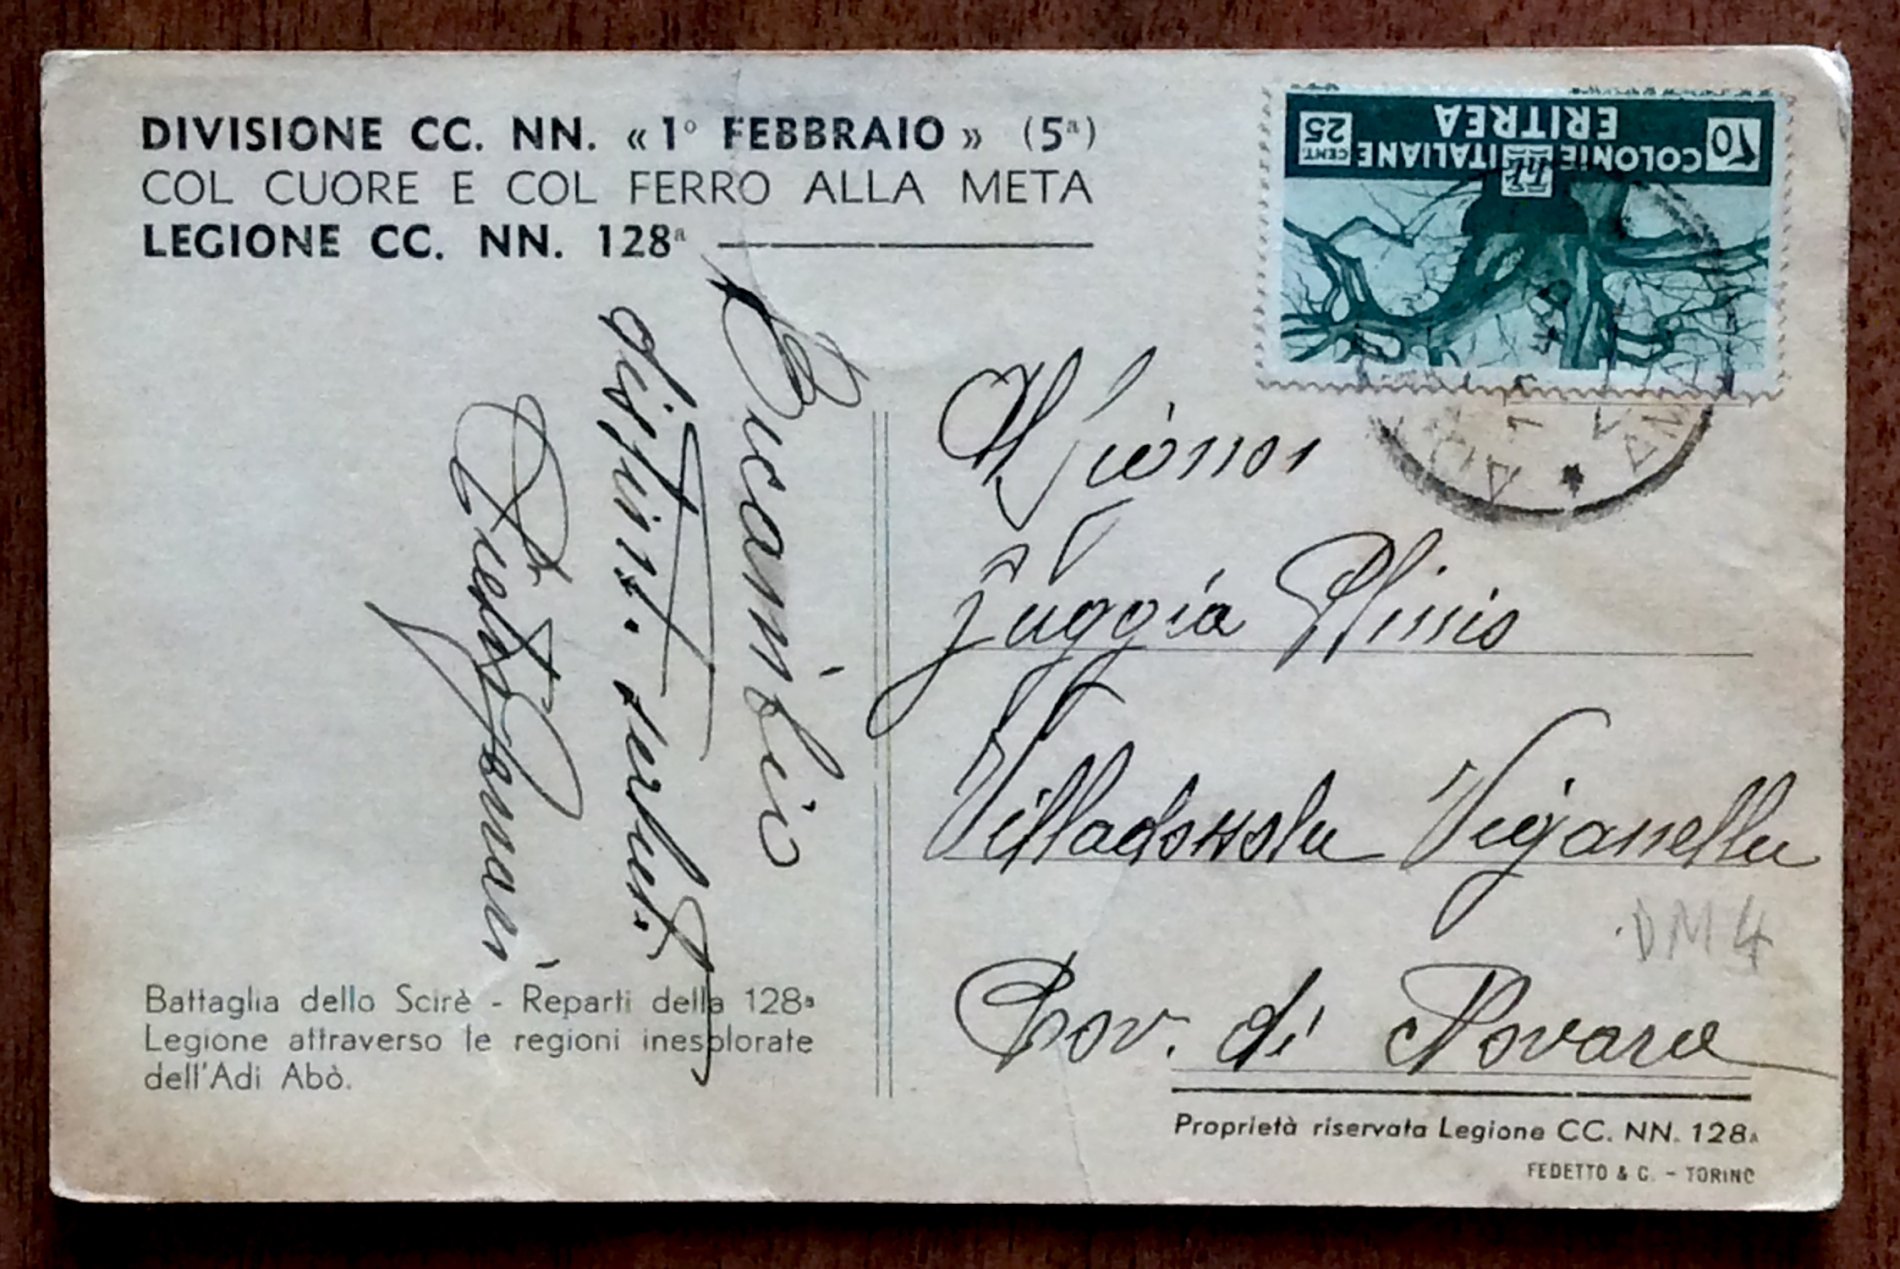 DIVISIONE CC. NN. « 1° FEBBRAIO » (5ª)
COL CUORE E COL FERRO ALLA META
LEGIONE CC. NN. 128ª
COLONIE ITALIANE
ERITREA
CENT. 25
10
Ricambio
distint. saluti
Battaglia dello Scirè - Reparti della 128ª
Legione attraverso le regioni inesplorate
dell'Adi Abò.
Zuggia Plinio
Villadossola Viganella
Prov. di Novara
DM4
Proprietà riservata Legione CC. NN. 128ª
FEDETTO & C. - TORINO